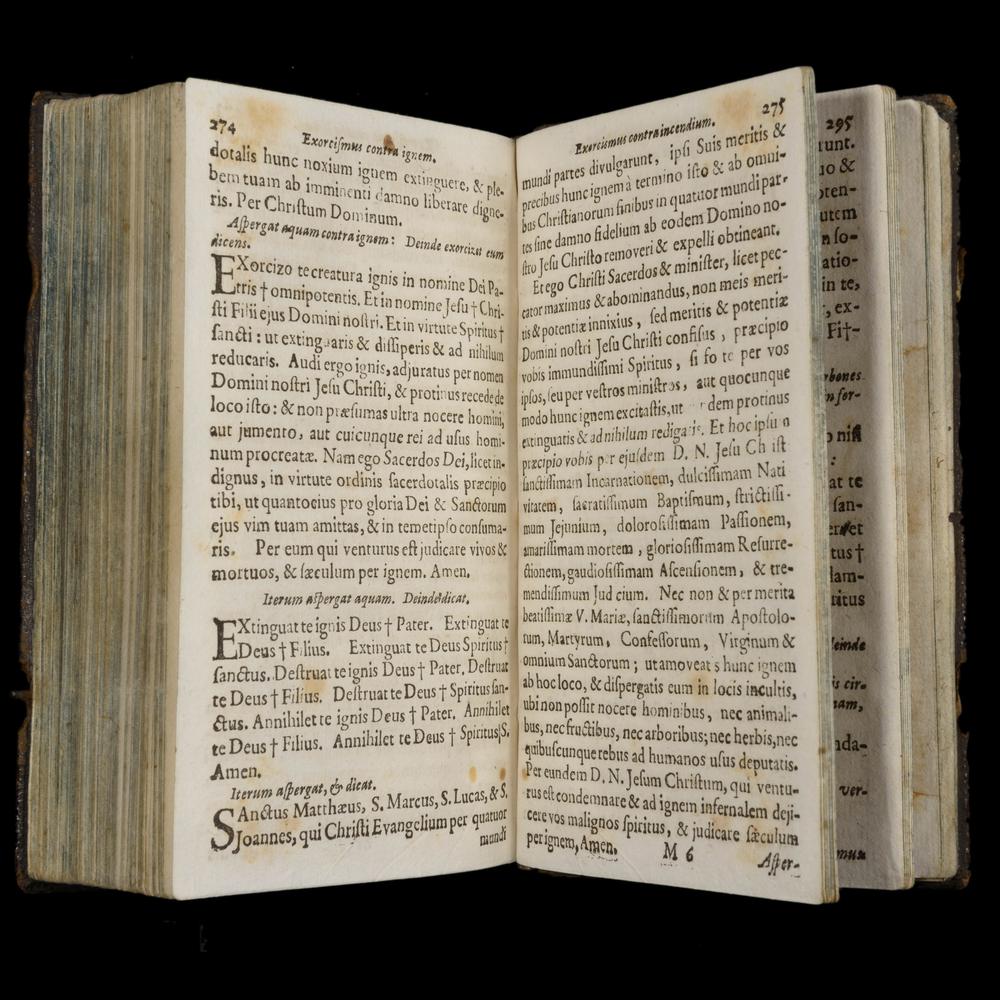 274
Exorciſmus contra ignem.
dotalis hunc noxium ignem extinguere, & ple-
bem tuam ab imminenti damno liberare digne-
ris. Per Chriſtum Dominum.
Aſpergat aquam contra ignem: Deinde exorcizet eum
dicens.
EXorcizo te creatura ignis in nomine Dei Pa-
tris † omnipotentis. Et in nomine Jeſu † Chri-
ſti Filii ejus Domini noſtri. Et in virtute Spiritus †
ſancti: ut extinguaris & diſſiperis & ad nihilum
reducaris. Audi ergo ignis, adjuratus per nomen
Domini noſtri Jeſu Chriſti, & protinus recede de
loco iſto: & non præſumas ultra nocere homini,
aut jumento, aut cuicunque rei ad uſus homi-
num procreatæ. Nam ego Sacerdos Dei, licet in-
dignus, in virtute ordinis ſacerdotalis præcipio
tibi, ut quantocius pro gloria Dei & Sanctorum
ejus vim tuam amittas, & in temetipſo conſuma-
ris. Per eum qui venturus eſt judicare vivos &
mortuos, & ſæculum per ignem. Amen.
Iterum aſpergat aquam. Deinde dicat.
EXtinguat te ignis Deus † Pater. Extinguat te
Deus † Filius. Extinguat te Deus Spiritus †
ſanctus. Deſtruat te ignis Deus † Pater. Deſtruat
te Deus † Filius. Deſtruat te Deus † Spiritus ſan-
ctus. Annihilet te ignis Deus † Pater. Annihilet
te Deus † Filius. Annihilet te Deus † Spiritus S.
Amen.
Iterum aſpergat, & dicat.
SAnctus Matthæus, S. Marcus, S. Lucas, & S.
Joannes, qui Chriſti Evangelium per quatuor
mundi
275
Exorcismus contra incendium.
mundi partes divulgarunt, ipſi Suis meritis &
precibus hunc ignem à termino iſto & ab omni-
bus Chriſtianorum finibus in quatuor mundi par-
tes ſine damno fidelium ab eodem Domino no-
ſtro Jeſu Chriſto removeri & expelli obtineant.
Et ego Chriſti Sacerdos & miniſter, licet pec-
cator maximus & abominandus, non meis meri-
tis & potentiæ innixius, ſed meritis & potentiæ
Domini noſtri Jeſu Chriſti confiſus, præcipio
vobis immundiſſimi Spiritus, ſi fo te per vos
ipſos, ſeu per veſtros miniſtros, aut quocunque
modo hunc ignem excitaſtis, ut dem protinus
extinguatis & ad nihilum redigatis. Et hoc ipſu n
præcipio vobis per ejuſdem D. N. Jeſu Ch iſt
ſanctiſſimam Incarnationem, dulciſſimam Nati
vitatem, ſacratiſſimum Baptiſmum, ſtrictiſſi-
mum Jejunium, doloroſiſſimam Paſſionem,
amariſſimam mortem, glorioſiſſimam Reſurre-
ctionem, gaudioſiſſimam Aſcenſionem, & tre-
mendiſſimum Jud cium. Nec non & per merita
beatiſſimæ V. Mariæ, ſanctiſſimorum Apoſtolo-
rum, Martyrum, Confeſſorum, Virginum &
omnium Sanctorum; ut amoveat s hunc ignem
ab hoc loco, & diſpergatis eum in locis incultis,
ubi non poſſit nocere hominibus, nec animali-
bus, nec fructibus, nec arboribus; nec herbis, nec
quibuſcunque rebus ad humanos uſus deputatis.
Per eundem D. N. Jeſum Chriſtum, qui ventu-
rus eſt condemnare & ad ignem infernalem deji-
cere vos malignos ſpiritus, & judicare ſæculum
per ignem, Amen.
M 6
Aſper-
295
runt.
uo &
oten-
utem
n ſo-
atio-
in te,
, ex-
Fi†-
rbones
in for-
o niſi
:
at te
ſan-
er et
tus †
lam-
ritus
deinde
is cir-
nam,
nda-
ver-
mus